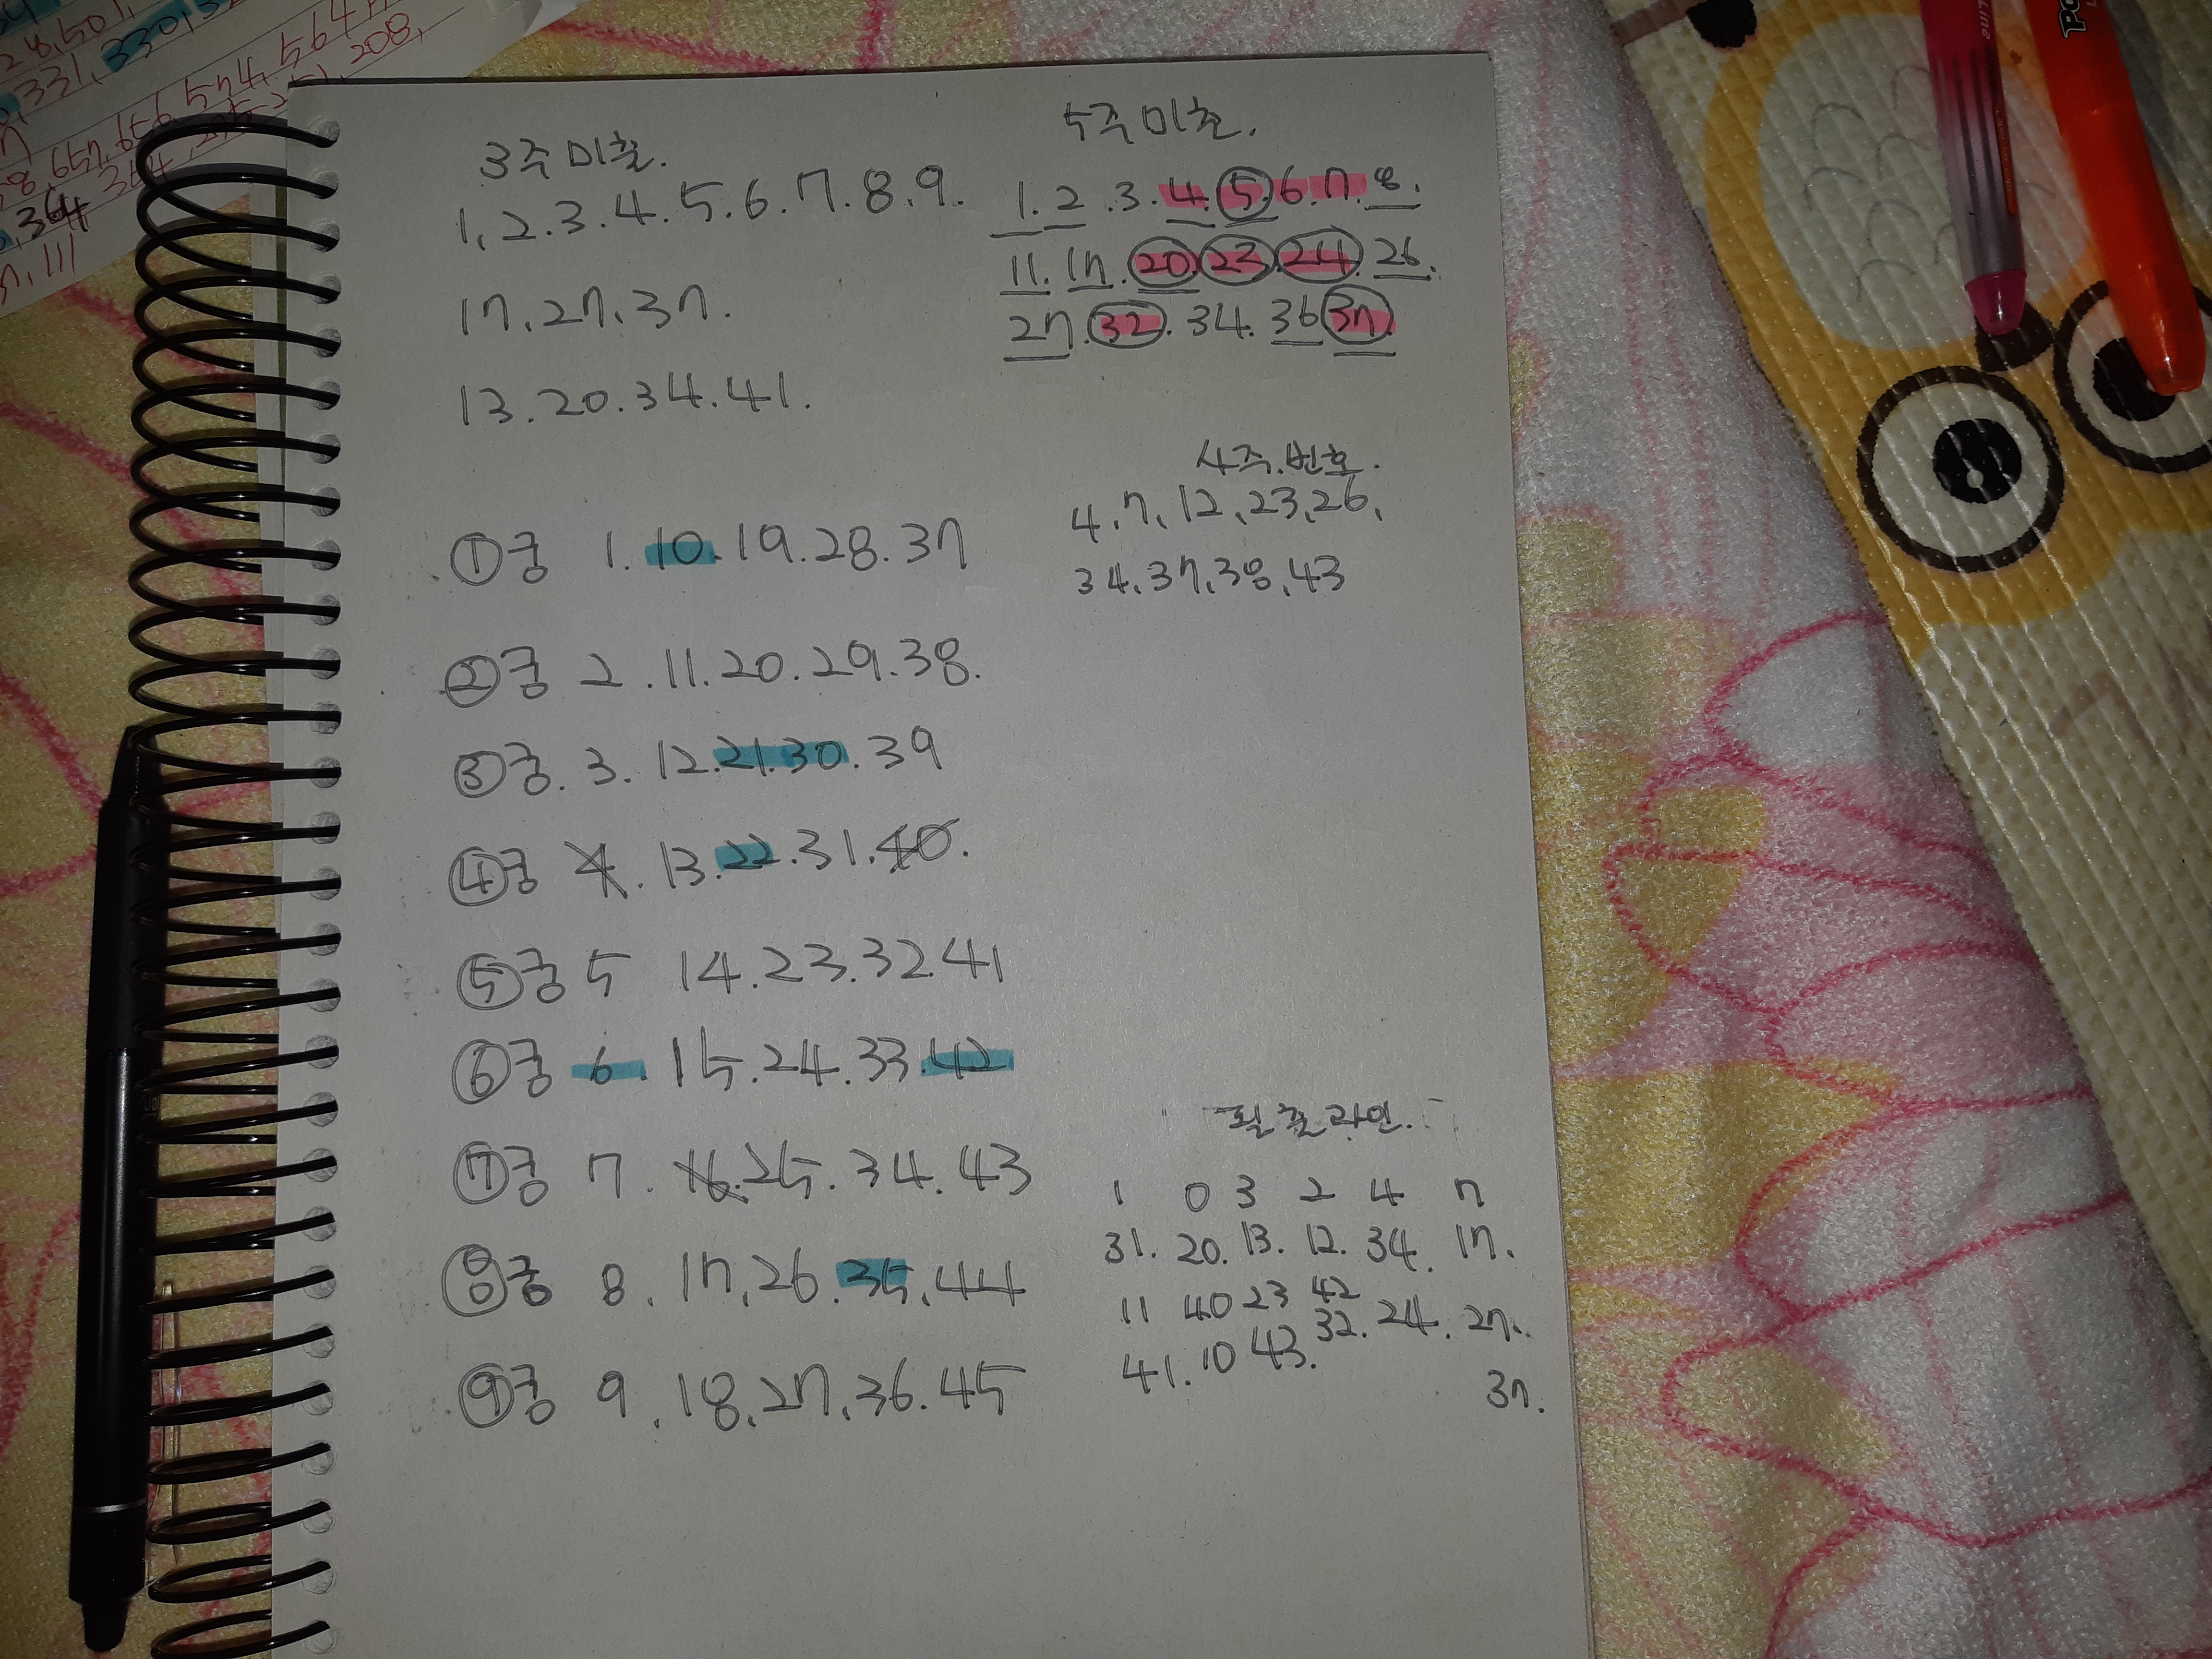 3주 미출.
1, 2. 3. 4. 5. 6. 7. 8. 9.
17, 27, 37.
13. 20. 34. 41.
5주 미출.
1. 2. 3. 4. 5. 6. 7. 8.
11. 17. 20. 23. 24. 26.
27. 32. 34. 36 37.
4주.번호.
4, 7, 12, 23, 26,
34, 37, 38, 43
①궁 1. 10. 19. 28. 37
②궁 2. 11. 20. 29. 38.
③궁. 3. 12. 21. 30. 39
④궁 4. 13. 22. 31. 40.
⑤궁 5 14. 23. 32 41
⑥궁 6. 15. 24. 33. 42
⑦궁 7. 16. 25. 34. 43
⑧궁 8. 17, 26. 35, 44
⑨궁 9. 18, 27, 36. 45
필출라인.
1 0 3 2 4 7
31. 20. 13. 12. 34. 17.
11 40 23 42
32. 24. 27.
41. 10 43.
37.
28,501,
331, 330,
657, 656, 574, 564,
364,
208,
364,
111